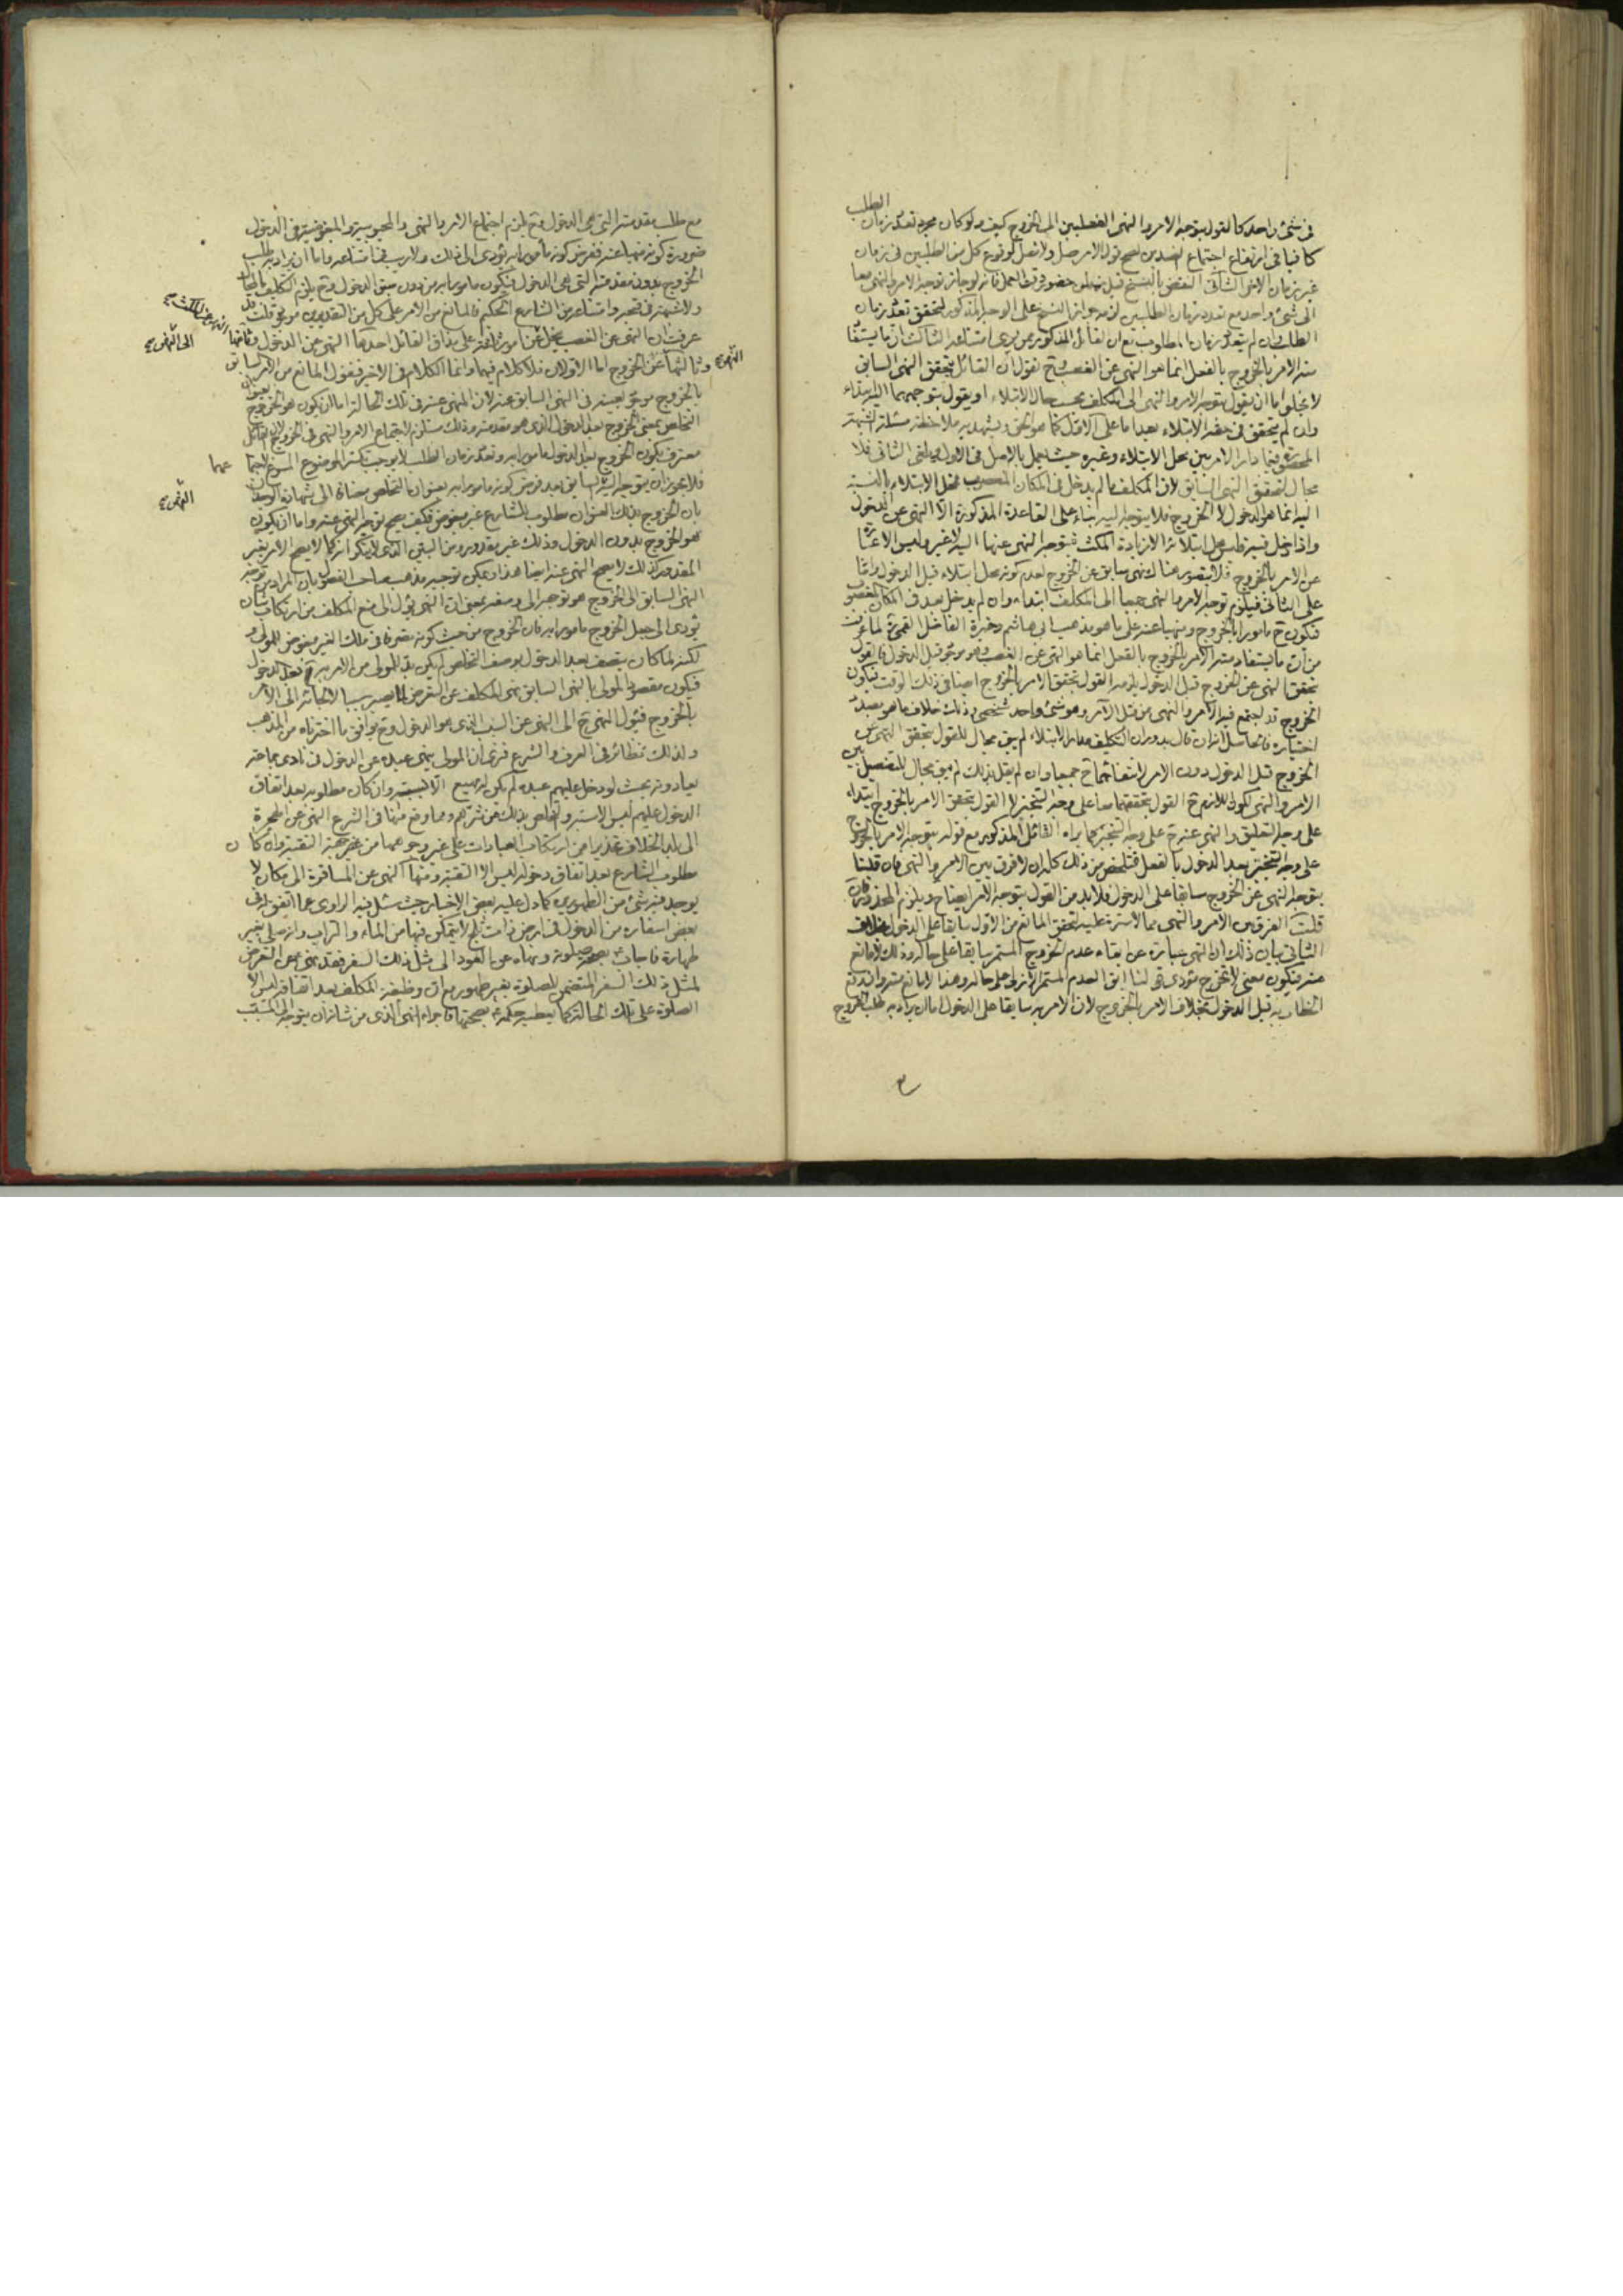 الطلب
فى شئ واحد كالقول بتوجه الامر والنهى الفعليين الى الخروج كيف ولو كان مجرد تعدد زمان
كافيا فى ارتفاع اجتماع الضدين لصح قول الامر صل ولا تصل لوقوع كل من الطلبين فى زمان
غير زمان الاخر الثانى النقض بالنسخ قبل حضور وقت العمل فانه لو جاز توجه الامر والنهى معا
الى شئ واحد مع تعدد زمان الطلبين لزم جواز النسخ على الوجه المذكور لتحقق تعدد زمان
الطلب وان لم يتعدد زمان المطلوب مع ان القائل المذكور ممن يرى امتناعه الثالث ان ما يستفا
منه الامر بالخروج بالفعل انما هو النهى عن الغصب وح نقول ان القائل بتحقق النهى السابق
لا يخلوا ما ان يقول بتوجه الامر والنهى الى المكلف بحسب حال الابتلاء او يقول بتوجههما اليه ابتداء
وان لم يتحقق فى حقه الابتلاء بعد اما على الاول كما هو الحق ويشهد به ملاحظة مسئلة الشبهة
المحصورة فيما دار الامر بين محل الابتلاء وغيره حيث يعمل بالاصل فى الاول دون الثانى فلا
مجال لتحقق النهى السابق لان المكلف ما لم يدخل فى المكان المغصوب محل الابتلاء بالنسبة
اليه انما هو الدخول لا الخروج فلا يتوجه اليه بناء على القاعدة المذكورة الا النهى عن الدخول
واذا دخل فيه فليس محل ابتلائه الا زيادة المكث فيتوجه النهى عنها اليه لا غير وليس الاعتنا
عن الامر بالخروج فلا يتصور هناك نهى سابق عن الخروج لعدم كونه محل ابتلاء قبل الدخول واما
على الثانى فيلزم توجه الامر والنهى جميعا الى المكلف ابتداء وان لم يدخل بعد فى المكان المغصوب
فيكون ح مامورا بالخروج ومنهيا عنه على ما هو مذهب ابى هاشم وخيرة الفاضل القمى لما عرفت
من ان ما يستفاد منه الامر بالخروج بالفعل انما هو النهى عن الغصب وهو موجود قبل الدخول فالقول
بتحقق النهى عن الخروج قبل الدخول يلزمه القول بتحقق الامر بالخروج ايضا فى ذلك الوقت فيكون
الخروج قد اجتمع فيه الامر والنهى من قبل الآمر وهو شئ واحد شخصى وذلك خلاف ما هو بصدد
اختياره فالحاصل انه ان قال بدوران التكليف مدار الابتلاء لم يبق مجال للقول بتحقق النهى عن
الخروج قبل الدخول دون الامر لانتفائهما ح جميعا وان لم يقل بذلك لم يبق مجال للتفصيل بين
الامر والنهى لكون اللازم ح القول بتحققهما معا على وجه التنجيز لا القول بتحقق الامر بالخروج ابتداء
على وجه التعليق والنهى عنه ح على وجه التنجيز كما يراه القائل المذكور مع قوله بتوجه الامر بالخروج
على وجه التنجيز بعد الدخول بالفعل فتلخص من ذلك كله ان لا فرق بين الامر والنهى فان قلنا
بتوجه النهى عن الخروج سابقا على الدخول فلا بد من القول بتوجه الامر ايضا ح ويلزم المحذور فان
قلت الفرق بين الامر والنهى مما لا سترة عليه لتحقق المانع من الاول سابقا على الدخول بخلاف
الثانى بيان ذلك ان النهى عبارة عن ابقاء عدم الخروج المستمر سابقا على حاله وذلك لا مانع
منه فيكون معنى لا تخرج مؤدى قولنا ابق العدم المستمر الازلى على حاله وهذا لا مانع منه وان وقع
الخطاب به قبل الدخول بخلاف الامر بالخروج لان الامر به سابقا على الدخول اما ان يراد به طلب الخروج
مع طلب مقدمته التى هى الدخول وح يلزم اجتماع الامر والنهى والمحبوبية والمبغوضية فى الدخول
ضرورة كونه منهيا عنه ففرض كونه مأمورا به يؤدى الى ذلك ولا ريب فى امتناعه واما ان يراد به طلب
الخروج بدون مقدمته التى هى الدخول فيكون مامورا به من دون سبق الدخول وح يلزم التكليف بالمحال
ولا شبهة فى قبحه وامتناعه من الشارع الحكيم فالمانع من الامر على كل من التقديرين موجود قلت قد
عرفت ان النهى عن الغصب ينحل عن امور ثلثة على مذاق القائل احدها النهى عن الدخول وثانيها النهى عن المكث
وثالثها عن الخروج اما الاولان فلا كلام فيهما وانما الكلام فى الاخير فنقول المانع من الامر السابق
بالخروج موجود بعينه فى النهى السابق عنه لان المنهى عنه فى تلك الحالة اما ان يكون هو الخروج بعنوان
التخلص بمعنى الخروج بعد الدخول الذى هو مقدمته وذلك مستلزم لاجتماع الامر والنهى فى الخروج لان القائل
معترف بكون الخروج بعد الدخول مامورا به وتعدد زمان الطلب لا يوجب تكثر الموضوع المسوغ لاجتما عهما
فلا يجوز ان يتوجه اليه النهى السابق بعد فرض كونه مامورا به بعنوان التخلص مضافا الى شهادة الوجدان
بان الخروج بذلك العنوان مطلوب للشارع غير مبغوض فكيف يصح توجه النهى عنه واما ان يكون
هو الخروج بدون الدخول وذلك غير مقدور ومن البين الذى لا ينكر انه كما لا يصح الامر بغير
المقدور كذلك لا يصح النهى عنه ايضا هذا ويمكن توجيه مذهب صاحب الفصول بان المراد من توجه
النهى السابق الى الخروج هو توجهه الى وصفه بمعنى ان النهى يؤل الى منع المكلف من ارتكاب شان
يؤدى الى جعل الخروج مامورا به فان الخروج من حيث كونه تصرفا فى ملك الغير مبغوض للمولى و
لكنه لما كان يتصف بعد الدخول بوصف التخلص لم يكن بد للمولى من الامر به ح بعد الدخول
فيكون مقصود المولى بالنهى السابق نهى المكلف عن التعرض لما يصير سببا لالجائه الى الامر
بالخروج فيئول النهى ح الى النهى عن السبب الذى هو الدخول وح يوافق ما اخترناه من المذهب
ولذلك نظائر فى العرف والشرع فترى ان المولى ينهى عبده عن الدخول فى نادى جماعة
يعادونه بحيث لو دخل عليهم عبده لم يكن له بد من الا بسبه وان كان مطلوبه بعد اتفاق
الدخول عليهم ليس الا سبه والتخلص بذلك عن شرهم ومما وقع منها فى الشرع النهى عن المهاجرة
الى بلد الخلاف تحذيرا من ارتكاب العبادات على غير وجوهها من جهة التقية وان كان
مطلوب الشارع بعد اتفاق دخوله ليس الا التقية ومنها النهى عن المسافرة الى مكان لا
يوجد فيه شئ من الطهورين كما دل عليه بعض الاخبار حيث سئل فيه الراوى عما اتفق له فى
بعض اسفاره من الدخول فى ارض ذات ثلج لا يتمكن فيها من الماء والتراب وانه صلى بغير
طهارة فاجاب بصحة صلوته ونهاه عن العود الى مثل ذلك السفر فقد نهى عن التعرض
لمثل ذلك السفر المتضمن للصلوة بغير طهور مع ان وظيفة المكلف بعد اتفاقه ليس الا
الصلوة على تلك الحالة كما يعطيه حكمه بصحتها فاجراء النهى الذى من شانه ان يتوجه الى السبب